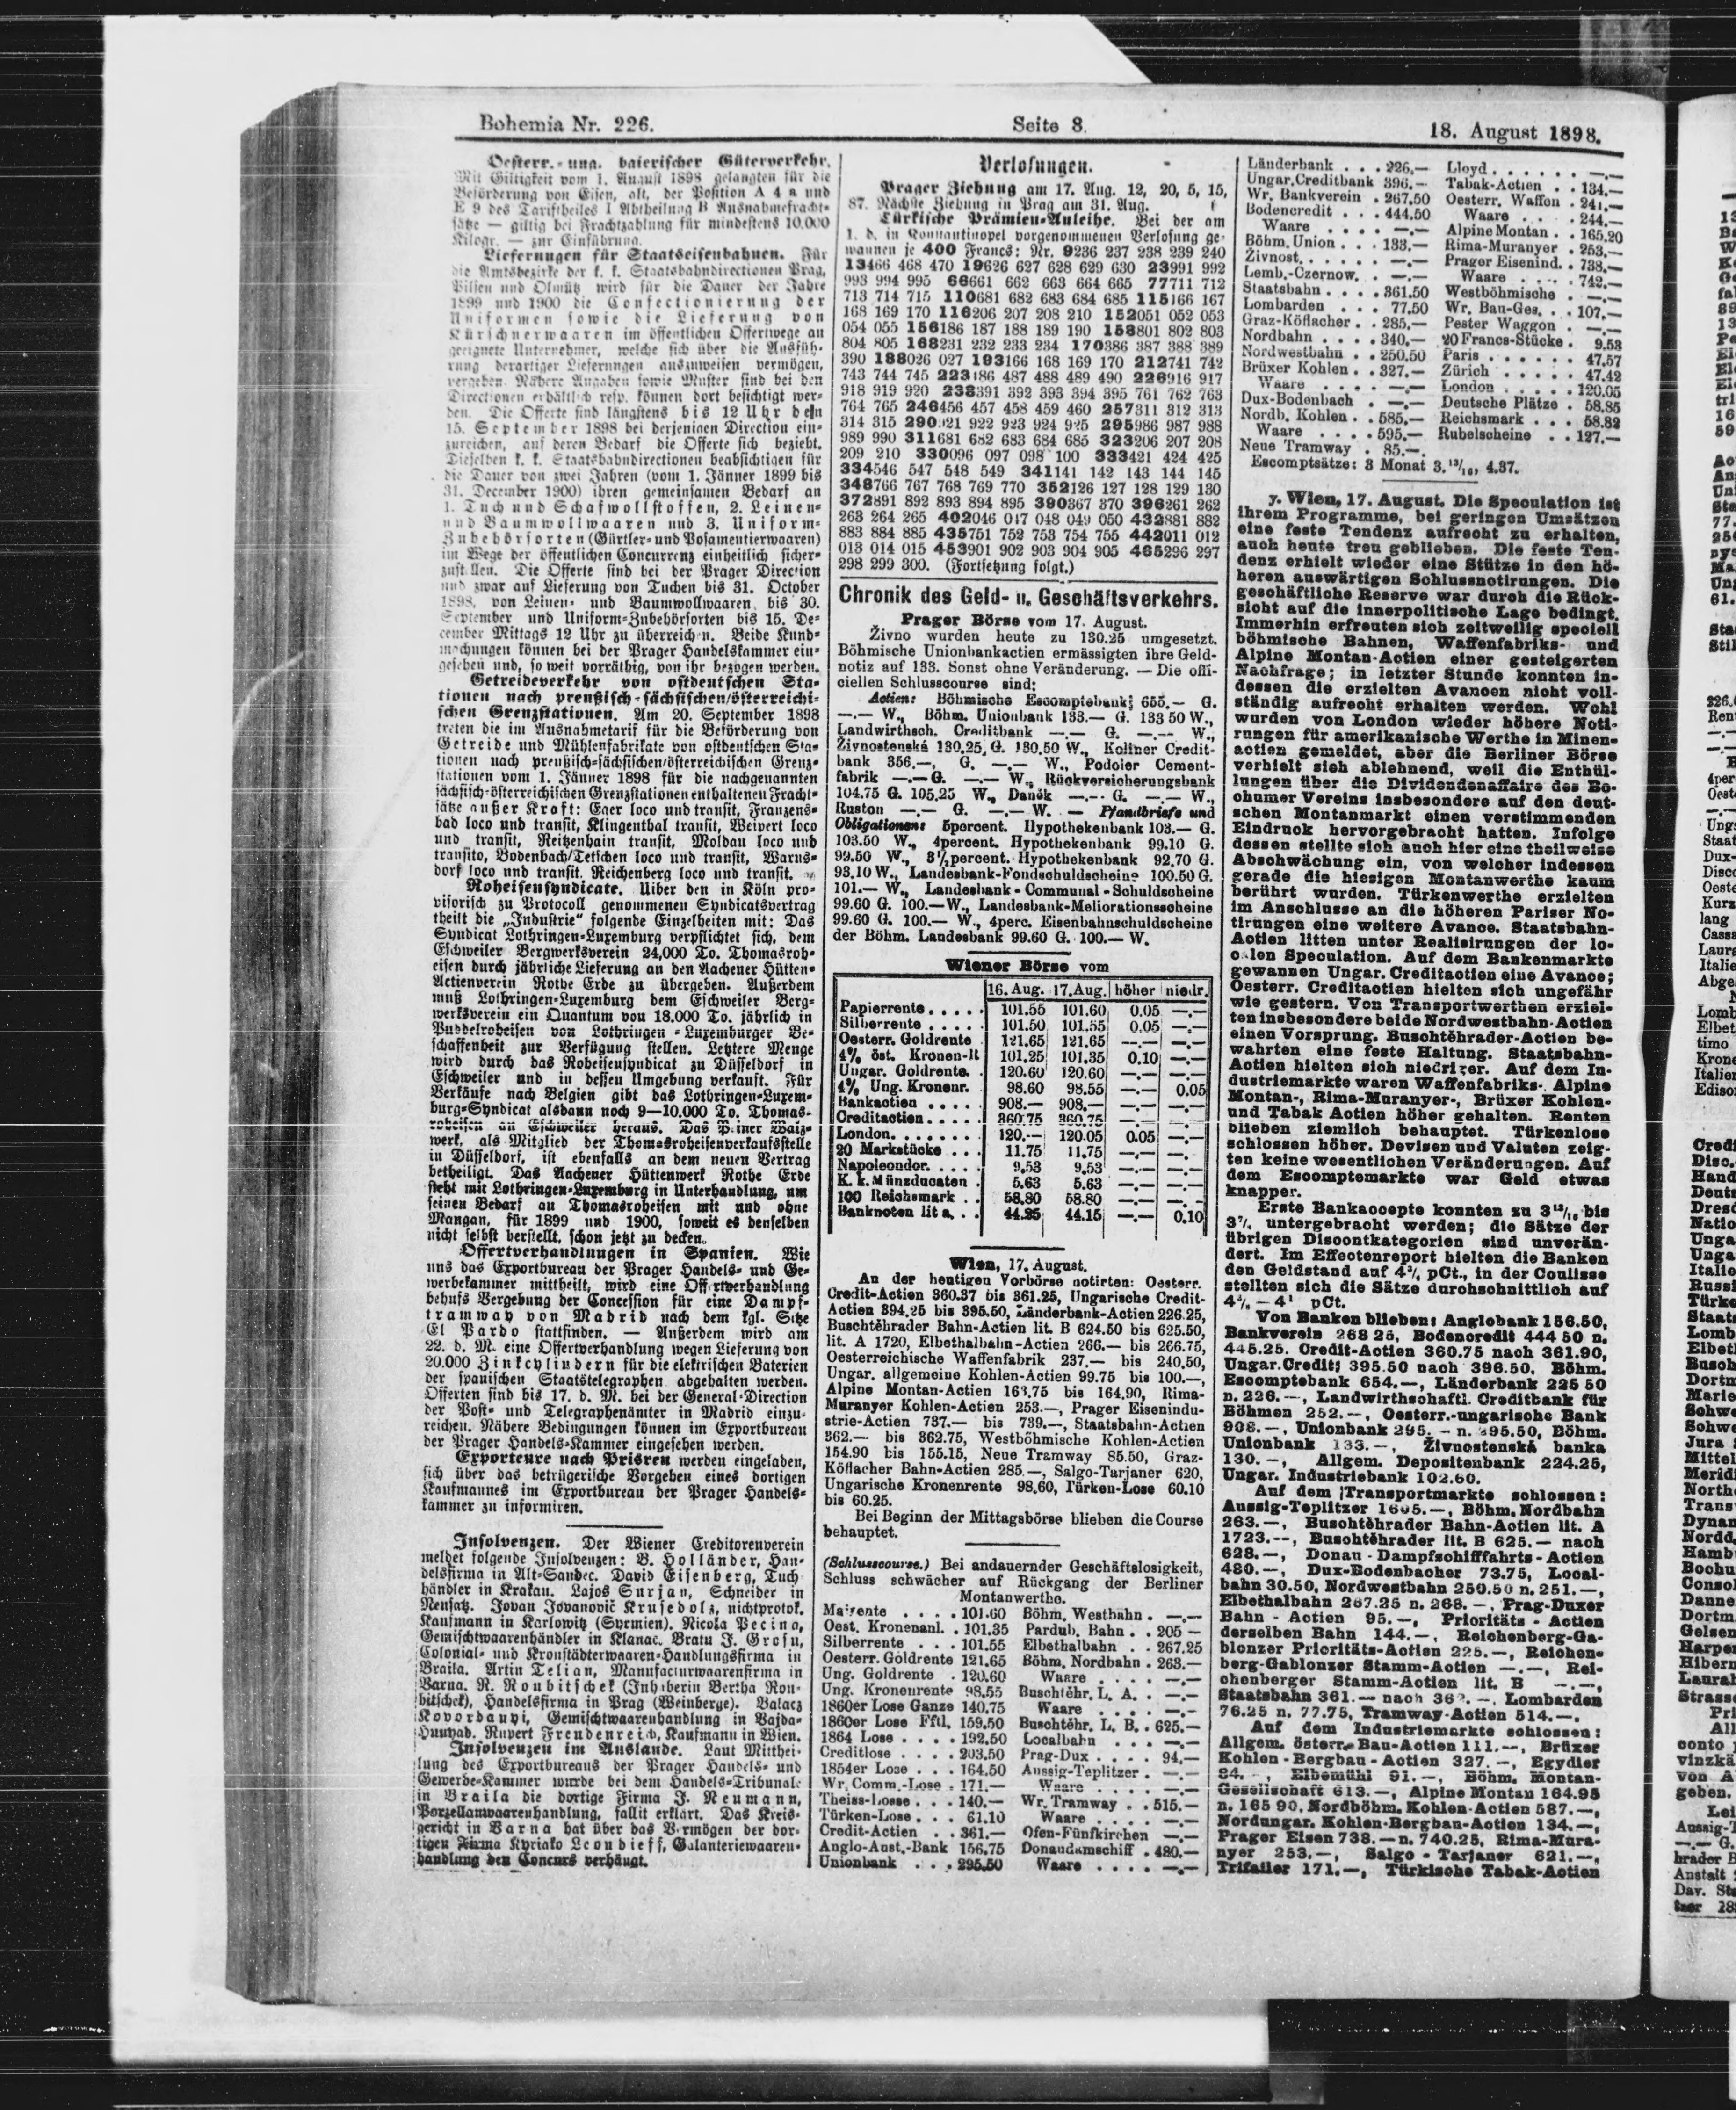 Bohemia Nr. 226.
Seite 8.
18. August 1898.
Oesterr.-ung. baierischer Güterverkehr.
Mit Giltigkeit vom 1. August 1898 gelangten für die
Beförderung von Eisen, alt, der Position A 4 a und
E 9 des Tariftheiles I Abtheilung B Ausnahmefracht-
sätze — giltig bei Frachtzahlung für mindestens 10.000
Kilogr. — zur Einführung.
Lieferungen für Staatseisenbahnen. Für
die Amtsbezirke der k. k. Staatsbahndirectionen Prag,
Pilsen und Olmütz wird für die Dauer der Jahre
1899 und 1900 die Confectionierung der
Uniformen sowie die Lieferung von
Kürschnerwaaren im öffentlichen Offertwege an
geeignete Unternehmer, welche sich über die Ausfüh-
rung derartiger Lieferungen auszuweisen vermögen,
vergeben. Nähere Angaben sowie Muster sind bei den
Directionen erhältlich resp. können dort besichtigt wer-
den. Die Offerte sind längstens bis 12 Uhr dem
15. September 1898 bei derjenigen Direction ein-
zureichen, auf deren Bedarf die Offerte sich bezieht.
Dieselben k. k. Staatsbahndirectionen beabsichtigen für
die Dauer von zwei Jahren (vom 1. Jänner 1899 bis
31. December 1900) ihren gemeinsamen Bedarf an
1. Tuch und Schafwollstoffen, 2. Leinen-
und Baumwollwaaren und 3. Uniform-
Zubehörsorten (Gürtler- und Posamentierwaaren)
im Wege der öffentlichen Concurrenz einheitlich sicher-
zustellen. Die Offerte sind bei der Prager Direction
und zwar auf Lieferung von Tuchen bis 31. October
1898, von Leinen- und Baumwollwaaren bis 30.
September und Uniform-Zubehörsorten bis 15. De-
cember Mittags 12 Uhr zu überreichen. Beide Kund-
machungen können bei der Prager Handelskammer ein-
gesehen und, so weit vorräthig, von ihr bezogen werden.
Getreideverkehr von ostdeutschen Sta-
tionen nach preußisch-sächsischen/österreichi-
schen Grenzstationen. Am 20. September 1898
treten die im Ausnahmetarif für die Beförderung von
Getreide und Mühlenfabrikate von ostdeutschen Sta-
tionen nach preußisch-sächsischen/österreichischen Grenz-
stationen vom 1. Jänner 1898 für die nachgenannten
sächsisch-österreichischen Grenzstationen enthaltenen Fracht-
sätze außer Kraft: Eger loco und transit, Franzens-
bad loco und transit, Klingenthal transit, Weipert loco
und transit, Reitzenhain transit, Moldau loco und
transito, Bodenbach/Tetschen loco und transit, Warns-
dorf loco und transit, Reichenberg loco und transit.
Roheisensyndicate. Ueber den in Köln pro-
visorisch zu Protocoll genommenen Syndicatsvertrag
theilt die „Industrie“ folgende Einzelheiten mit: Das
Syndicat Lothringen-Luxemburg verpflichtet sich, dem
Eschweiler Bergwerksverein 24,000 To. Thomasroh-
eisen durch jährliche Lieferung an den Aachener Hütten-
Actienverein Rothe Erde zu übergeben. Außerdem
muß Lothringen-Luxemburg dem Eschweiler Berg-
werksverein ein Quantum von 18.000 To. jährlich in
Puddelroheisen von Lothringen-Luxemburger Be-
schaffenheit zur Verfügung stellen. Letztere Menge
wird durch das Roheisensyndicat zu Düsseldorf in
Eschweiler und in dessen Umgebung verkauft. Für
Verkäufe nach Belgien gibt das Lothringen-Luxem-
burg-Syndicat alsdann noch 9—10.000 To. Thomas-
roheisen an Eschweiler heraus. Das Peiner Walz-
werk, als Mitglied der Thomasroheisenverkaufsstelle
in Düsseldorf, ist ebenfalls an dem neuen Vertrag
betheiligt. Das Aachener Hüttenwerk Rothe Erde
steht mit Lothringen-Luxemburg in Unterhandlung, um
seinen Bedarf an Thomasroheisen mit und ohne
Mangan, für 1899 und 1900, soweit es denselben
nicht selbst herstellt, schon jetzt zu decken.
Offertverhandlungen in Spanien. Wie
uns das Exportbureau der Prager Handels- und Ge-
werbekammer mittheilt, wird eine Offertverhandlung
behufs Vergebung der Concession für eine Dampf-
tramway von Madrid nach dem kgl. Sitze
El Pardo stattfinden. — Außerdem wird am
22. d. M. eine Offertverhandlung wegen Lieferung von
20.000 Zinkcylindern für die elektrischen Baterien
der spanischen Staatstelegraphen abgehalten werden.
Offerten sind bis 17. d. M. bei der General-Direction
der Post- und Telegraphenämter in Madrid einzu-
reichen. Nähere Bedingungen können im Exportbureau
der Prager Handels-Kammer eingesehen werden.
Exporteure nach Prisren werden eingeladen,
sich über das betrügerische Vorgehen eines dortigen
Kaufmannes im Exportbureau der Prager Handels-
kammer zu informiren.
Insolvenzen. Der Wiener Creditorenverein
meldet folgende Insolvenzen: B. Holländer, Han-
delsfirma in Alt-Sandec. David Eisenberg, Tuch
händler in Krakau. Lajos Surjan, Schneider in
Neusatz. Jovan Jovanovič Krusedolz, nichtprotok.
Kaufmann in Karlowitz (Syrmien). Nicola Pecina,
Gemischtwaarenhändler in Klanac. Bratu J. Grosu,
Colonial- und Kronstädterwaaren-Handlungsfirma in
Braila. Artin Telian, Manufacturwaarenfirma in
Varna. R. Roubitschek (Inhaberin Bertha Rou-
bitschek), Handelsfirma in Prag (Weinberge). Balacz
Kovordanyi, Gemischtwaarenhandlung in Vajda-
Hunyad. Rupert Freudenreich, Kaufmann in Wien.
Insolvenzen im Auslande. Laut Mitthei-
lung des Exportbureaus der Prager Handels- und
Gewerbe-Kammer wurde bei dem Handels-Tribunal
in Braila die dortige Firma J. Neumann,
Porzellanwaarenhandlung, fallit erklärt. Das Kreis-
gericht in Varna hat über das Vermögen der dor-
tigen Firma Kyriako Leondieff, Galanteriewaaren-
handlung den Concurs verhängt.
Verlosungen.
Prager Ziehung am 17. Aug. 12, 20, 5, 15,
87. Nächste Ziehung in Prag am 31. Aug.
Türkische Prämien-Anleihe. Bei der am
1. d. in Konstantinopel vorgenommenen Verlosung ge-
wannen je 400 Francs: Nr. 9236 237 238 239 240
13466 468 470 19626 627 628 629 630 23991 992
993 994 995 66661 662 663 664 665 77711 712
713 714 715 110681 682 683 684 685 115166 167
168 169 170 116206 207 208 210 152051 052 053
054 055 156186 187 188 189 190 158801 802 803
804 805 168231 232 233 234 170386 387 388 389
390 188026 027 193166 168 169 170 212741 742
743 744 745 223486 487 488 489 490 226916 917
918 919 920 238391 392 393 394 395 761 762 763
764 765 246456 457 458 459 460 257311 312 313
314 315 290921 922 923 924 925 295986 987 988
989 990 311681 682 683 684 685 323206 207 208
209 210 330096 097 098 100 333421 424 425
334546 547 548 549 341141 142 143 144 145
348766 767 768 769 770 352126 127 128 129 130
372891 892 893 894 895 390367 370 396261 262
263 264 265 402046 047 048 049 050 432881 882
883 884 885 435751 752 753 754 755 442011 012
013 014 015 453901 902 903 904 905 465296 297
298 299 300. (Fortsetzung folgt.)
Chronik des Geld- u. Geschäftsverkehrs.
Prager Börse vom 17. August.
Živno wurden heute zu 130.25 umgesetzt.
Böhmische Unionbankactien ermässigten ihre Geld-
notiz auf 133. Sonst ohne Veränderung. — Die offi-
ciellen Schlusscourse sind:
Actien: Böhmische Escomptebank; 655,— G.
—.— W., Böhm. Unionbank 133.— G. 133 50 W.,
Landwirthsch. Creditbank —.— G. —.— W.,
Živnostenská 130.25, G. 130.50 W., Koliner Credit-
bank 356.—, G. —.— W., Podoler Cement-
fabrik —.— G. —.— W., Rückversicherungsbank
104.75 G. 105.25 W., Danék —.— G. —.— W.,
Ruston —.— G. —.— W. — Pfandbriefe und
Obligationen: 5percent. Hypothekenbank 103.— G.
103.50 W., 4percent. Hypothekenbank 99.10 G.
99.50 W., 3½percent. Hypothekenbank 92.70 G.
93.10 W., Landesbank-Fondschuldscheine 100.50 G.
101.— W., Landesbank-Communal-Schuldscheine
99.60 G. 100.—W., Landesbank-Meliorationsscheine
99.60 G. 100.— W., 4perc. Eisenbahnschuldscheine
der Böhm. Landesbank 99.60 G. 100.— W.
Wiener Börse vom
16. Aug. 17. Aug. höher niedr.
Papierrente..... 101.55 101.60 0.05 —.—
Silberrente..... 101.50 101.55 0.05 —.—
Oesterr. Goldrente 121.65 121.65 —.— —.—
4% öst. Kronen-R 101.25 101.35 0.10 —.—
Ungar. Goldrente. 120.60 120.60 —.— —.—
4% Ung. Kronenr. 98.60 98.55 —.— 0.05
Bankactien..... 908.— 908.— —.— —.—
Creditactien..... 360.75 360.75 —.— —.—
London....... 120.— 120 05 0.05 —.—
20 Markstücke... 11.75 11.75 —.— —.—
Napoleondor..... 9.53 9.53 —.— —.—
K. k. Münzducaten. 5.63 5.63 —.— —.—
100 Reichsmark.. 58.80 58.80 —.— —.—
Banknoten lit a... 44.25 44.15 —.— 0.10
Wien, 17. August.
An der heutigen Vorbörse notirten: Oesterr.
Credit-Actien 360.37 bis 361.25, Ungarische Credit-
Actien 394.25 bis 395.50, Länderbank-Actien 226.25,
Buschtěhrader Bahn-Actien lit. B 624.50 bis 625.50,
lit. A 1720, Elbethalbahn-Actien 266.— bis 266.75,
Oesterreichische Waffenfabrik 237.— bis 240,50,
Ungar. allgemeine Kohlen-Actien 99.75 bis 100.—,
Alpine Montan-Actien 163.75 bis 164.90, Rima-
Muranyer Kohlen-Actien 253.—, Prager Eisenindu-
strie-Actien 737.— bis 739.—, Staatsbahn-Actien
362.— bis 362.75, Westböhmische Kohlen-Actien
154.90 bis 155.15, Neue Tramway 85.50, Graz-
Köflacher Bahn-Actien 285.—, Salgo-Tarjaner 620,
Ungarische Kronenrente 98,60, Türken-Lose 60.10
bis 60.25.
Bei Beginn der Mittagsbörse blieben die Course
behauptet.
(Schlusscourse.) Bei andauernder Geschäftslosigkeit,
Schluss schwächer auf Rückgang der Berliner
Montanwerthe.
Mairente.... 101.60 Böhm. Westbahn. —.—
Oest. Kronenanl.. 101.35 Pardub. Bahn.. 205 —
Silberrente... 101.55 Elbethalbahn.. 267.25
Oesterr. Goldrente 121.65 Böhm. Nordbahn. 263.—
Ung. Goldrente. 120.60 Waare.... —.—
Ung. Kronenrente 98.55 Buschtěhr. L. A.. —.—
1860er Lose Ganze 140.75 Waare.... —.—
1860er Lose Fftl. 159.50 Buschtěhr. L. B.. 625.—
1864 Lose.... 192.50 Localbahn... —.—
Creditlose.... 203.50 Prag-Dux.... 94.—
1854er Lose... 164.50 Aussig-Teplitzer. —.—
Wr. Comm.-Lose. 171.— Waare.... —.—
Theiss-Losse... 140.— Wr. Tramway.. 515.—
Türken-Lose... 61.10 Waare.... —.—
Credit-Actien.. 361.— Ofen-Fünfkirchen —.—
Anglo-Aust.-Bank 156.75 Donaudamschiff. 480.—
Unionbank... 295.50 Waare.... —.—
Länderbank... 226.— Lloyd...... —.—
Ungar. Creditbank 396.— Tabak-Action.. 134.—
Wr. Bankverein. 267.50 Oesterr. Waffen. 241.—
Bodencredit... 444.50 Waare... 244.—
Waare.... —.— Alpine Montan.. 165.20
Böhm. Union... 133.— Rima-Muranyer. 253.—
Živnost...... —.— Prager Eisenind.. 738.—
Lemb.-Czernow.. —.— Waare.... 742.—
Staatsbahn.... 361.50 Westböhmische. —.—
Lombarden... 77.50 Wr. Bau-Ges... 107.—
Graz-Köflacher.. 285.— Pester Waggon. —.—
Nordbahn.... 340.— 20 Francs-Stücke. 9.53
Nordwestbahn.. 250.50 Paris...... 47.57
Brüxer Kohlen.. 327.— Zürich..... 47.42
Waare.... —.— London..... 120.05
Dux-Bodenbach. —.— Deutsche Plätze. 58.85
Nordb. Kohlen.. 585.— Reichsmark... 58.82
Waare.... 595.— Rubelscheine.. 127.—
Neue Tramway. 85.—.
Escomptsätze: 3 Monat 3.¹³/₁₆, 4.37.
y. Wien, 17. August. Die Speculation ist
ihrem Programme, bei geringen Umsätzen
eine feste Tendenz aufrecht zu erhalten,
auch heute treu geblieben. Die feste Ten-
denz erhielt wieder eine Stütze in den hö-
heren auswärtigen Schlussnotirungen. Die
geschäftliche Reserve war durch die Rück-
sicht auf die innerpolitische Lage bedingt.
Immerhin erfreuten sich zeitweilig speciell
böhmische Bahnen, Waffenfabriks- und
Alpine Montan-Actien einer gesteigerten
Nachfrage; in letzter Stunde konnten in-
dessen die erzielten Avancen nicht voll-
ständig aufrecht erhalten werden. Wohl
wurden von London wieder höhere Noti-
rungen für amerikanische Werthe in Minen-
actien gemeldet, aber die Berliner Börse
verhielt sich ablehnend, weil die Enthül-
lungen über die Dividendenaffaire des Bo-
chumer Vereins insbesondere auf den deut-
schen Montanmarkt einen verstimmenden
Eindruck hervorgebracht hatten. Infolge
dessen stellte sich auch hier eine theilweise
Abschwächung ein, von welcher indessen
gerade die hiesigen Montanwerthe kaum
berührt wurden. Türkenwerthe erzielten
im Anschlusse an die höheren Pariser No-
tirungen eine weitere Avance. Staatsbahn-
Actien litten unter Realisirungen der lo-
calen Speculation. Auf dem Bankenmarkte
gewannen Ungar. Creditactien eine Avance;
Oesterr. Creditactien hielten sich ungefähr
wie gestern. Von Transportwerthen erziel-
ten insbesondere beide Nordwestbahn-Actien
einen Vorsprung. Buschtěhrader-Actien be-
wahrten eine feste Haltung. Staatsbahn-
Actien hielten sich niedriger. Auf dem In-
dustriemarkte waren Waffenfabriks-, Alpine
Montan-, Rima-Muranyer-, Brüxer Kohlen-
und Tabak Actien höher gehalten. Renten
blieben ziemlich behauptet. Türkenlose
schlossen höher. Devisen und Valuten zeig-
ten keine wesentlichen Veränderungen. Auf
dem Escomptemarkte war Geld etwas
knapper.
Erste Bankaccepte konnten zu 3¹³/₁₆ bis
3⁷/₈ untergebracht werden; die Sätze der
übrigen Discontkategorien sind unverän-
dert. Im Effectenreport hielten die Banken
den Geldstand auf pCt., in der Coulisse
stellten sich die Sätze durchschnittlich auf
pCt.
Von Banken blieben: Anglobank 156.50,
Bankverein 268 25, Bodencredit 444 50 n.
445.25. Credit-Actien 360.75 nach 361.90,
Ungar. Credit; 395.50 nach 396.50, Böhm.
Escomptebank 654.—, Länderbank 225 50
n. 226.—, Landwirthschaftl. Creditbank für
Böhmen 252.—, Oesterr.-ungarische Bank
908.—, Unionbank 295. — n. 295.50, Böhm.
Unionbank 133.—, Živnostenská banka
130.—, Allgem. Depositenbank 224.25,
Ungar. Industriebank 102.60.
Auf dem Transportmarkte schlossen:
Aussig-Teplitzer 1605.—, Böhm. Nordbahn
263.—, Buschtěhrader Bahn-Actien lit. A
1723.—, Buschtěhrader lit. B 625.— nach
628.—, Donau-Dampfschifffahrts-Actien
480.—, Dux-Bodenbacher 73.75, Local-
bahn 30.50, Nordwestbahn 250.50 n. 251.—,
Elbethalbahn 267.25 n. 268.—, Prag-Duxer
Bahn-Actien 95.—, Prioritäts-Actien
derselben Bahn 144.—, Reichenberg-Ga-
blonzer Prioritäts-Actien 225.—, Reichen-
berg-Gablonzer Stamm-Actien —.—, Rei-
chenberger Stamm-Actien lit. B —.—,
Staatsbahn 361.— nach 362.—, Lombarden
76.25 n. 77.75, Tramway-Actien 514.—.
Auf dem Industriemarkte schlossen:
Allgem. österr. Bau-Actien 111.—, Brüxer
Kohlen-Bergbau-Actien 327.—, Egydier
84.—, Elbemühl 91.—, Böhm. Montan-
Gesellschaft 613.—, Alpine Montan 164.95
n. 165 90, Nordböhm. Kohlen-Actien 587.—,
Nordungar. Kohlen-Bergbau-Actien 134.—,
Prager Eisen 738.— n. 740.25, Rima-Mura-
nyer 253.—, Salgo-Tarjaner 621.—,
Trifailer 171.—, Türkische Tabak-Actien